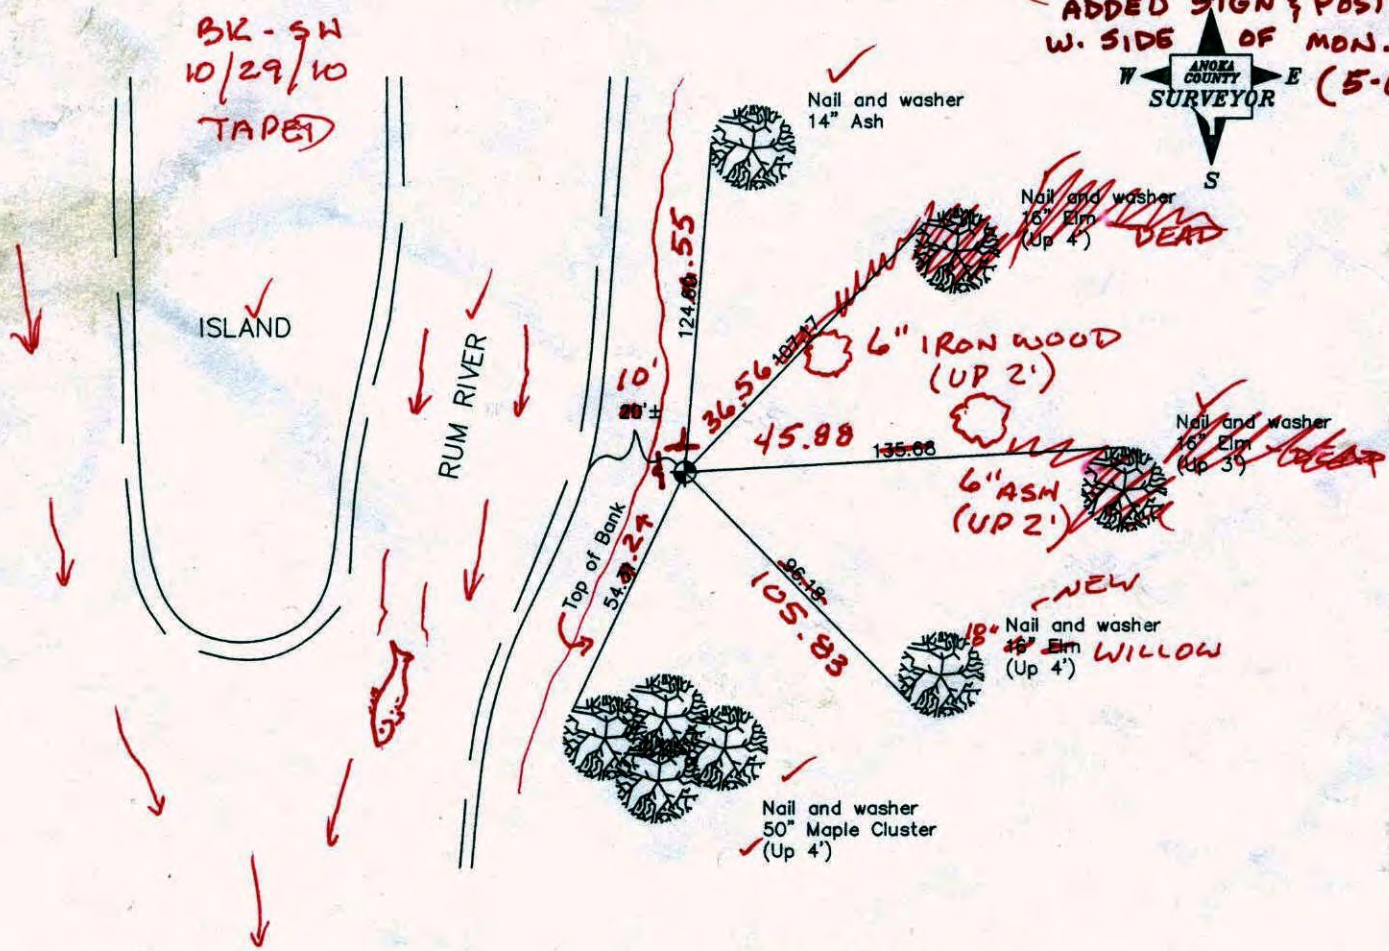 BK - SW
10/29/10
TAPED
ADDED SIGN & POST
W. SIDE OF MON.
(5-
W
ANOKA
COUNTY
E
SURVEYOR
S
Nail and washer
14" Ash
Nail and washer
16" Elm
(Up 4')
DEAD
ISLAND
RUM RIVER
124.
.55
107.17
36.56
6" IRON WOOD
(UP 2')
10'
20'±
45.88
135.68
Nail and washer
16" Elm
(Up 3')
DEAD
6" ASH
(UP 2')
Top of Bank
54.
.24
96.18
105.83
NEW
18"
Nail and washer
16" Elm
WILLOW
(Up 4')
Nail and washer
50" Maple Cluster
(Up 4')